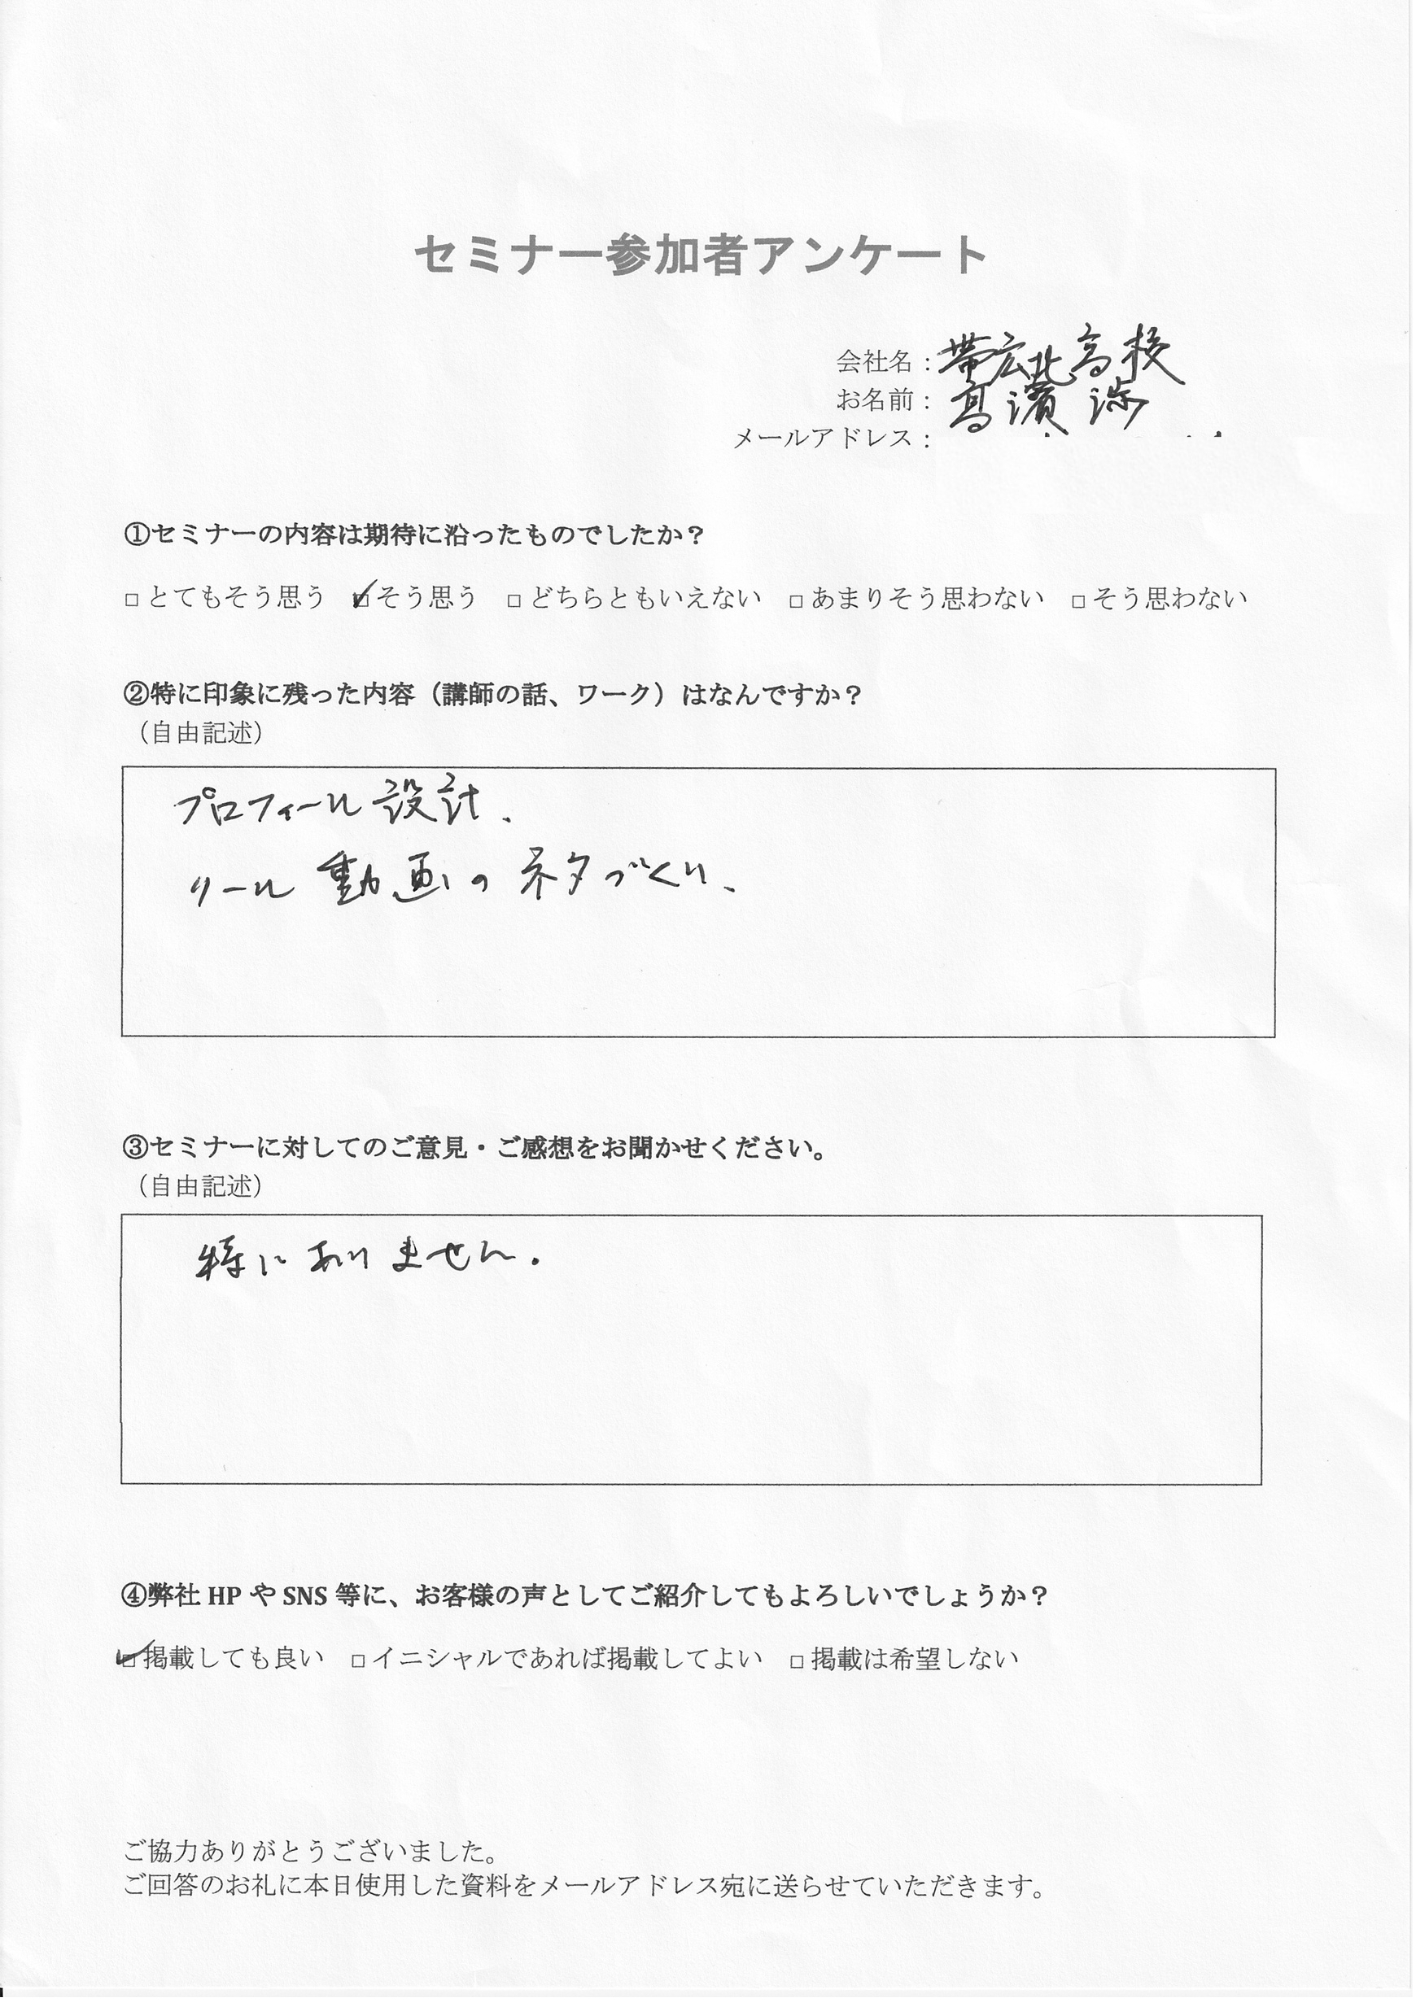 セミナー参加者アンケート
会社名：帯広北高校
お名前：髙濱 渉
メールアドレス：
①セミナーの内容は期待に沿ったものでしたか？
□とてもそう思う ☑そう思う □どちらともいえない □あまりそう思わない □そう思わない
②特に印象に残った内容（講師の話、ワーク）はなんですか？
（自由記述）
プロフィール設計.
リール動画のネタづくり.
③セミナーに対してのご意見・ご感想をお聞かせください。
（自由記述）
特にありません.
④弊社 HP や SNS 等に、お客様の声としてご紹介してもよろしいでしょうか？
☑掲載しても良い □イニシャルであれば掲載してよい □掲載は希望しない
ご協力ありがとうございました。
ご回答のお礼に本日使用した資料をメールアドレス宛に送らせていただきます。